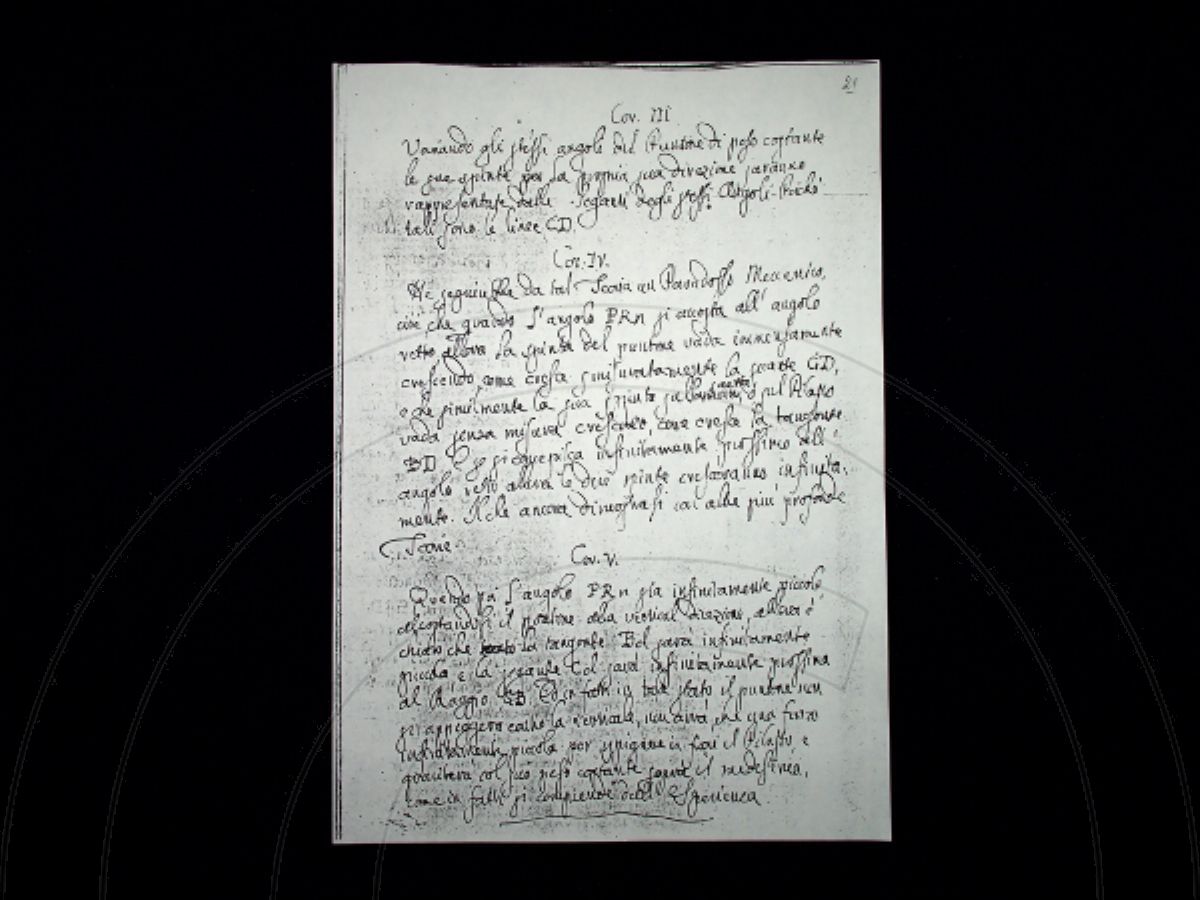 21
Cor. III
Variando gli stessi angoli del Puntone di peso costante
le sue spinte per la propria sua direzione saranno
rappresentate dalle Seganti degli stessi Angoli. Poiché
tali sono le linee CD.
Cor. IV.
Ne seguirebbe da tal Teoria un Paradosso Meccanico,
cioè che quando l'angolo PRn si accosta all'angolo
retto allora la spinta del puntone vada immensamente
crescendo, come cresce smisuratamente la secante CD,
e che similmente la sua spinta sul Pilastro
vada senza misura crescendo, come cresce la tangente
BD infinitamente prossimo all'
angolo retto allora le due spinte cresceranno infinita-
mente. Il che ancora dimostrasi con altre più profonde
Teorie.
Cor. V.
Quando poi l'angolo PRn sia infinitamente piccolo
accostandosi il puntone alla vertical direzione, allora è
chiaro che la tangente Bd sarà infinitamente
piccola e la secante Cd sarà infinitamente prossima
al Raggio CB. Ed in fatti in tale stato il puntone non
si appoggerà contro la verticale, non avrà che una forza
infinitamente piccola per spignere in fuori il Pilastro e
graviterà col suo peso costante sopra il medesimo,
come in fatti si comprende dalla Esperienza.